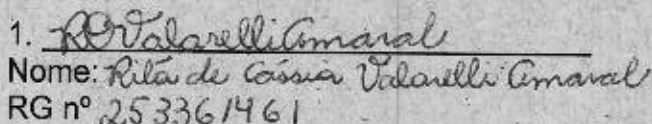 1. RCValarelliAmaral
Nome: Rita de Cássia Valarelli Amaral
RG nº 253361461